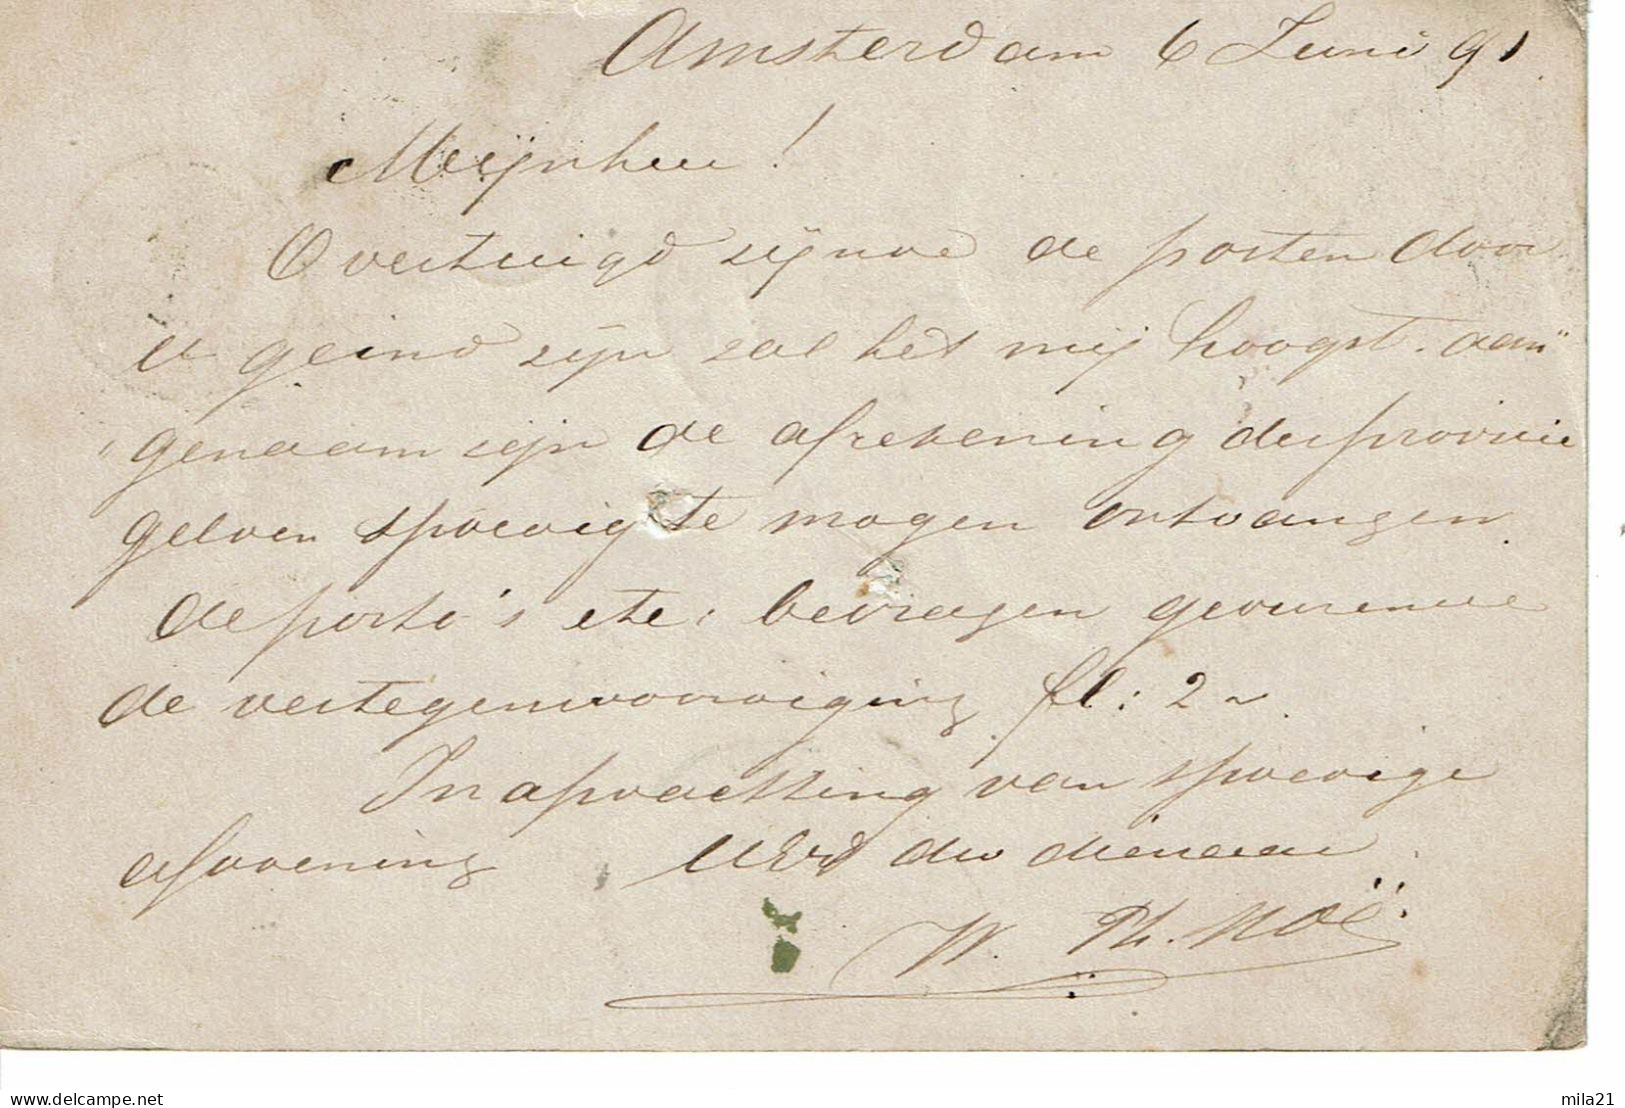 Amsterdam 6 Juni 91
Meÿnheer!
Overtuigd zijnde de posten door
U geind zijn zal het mij hoogst aan"
"genaam zijn de afrekening der provisie
gelden spoedig te mogen ontvangen
de porto's etc: bedragen gedurende
de vertegenwoordiging fl: 2 ~
In afwachting van spoedige
afdoening UEd dw dienaar
W. Ph. Noë
www.delcampe.net
mila21